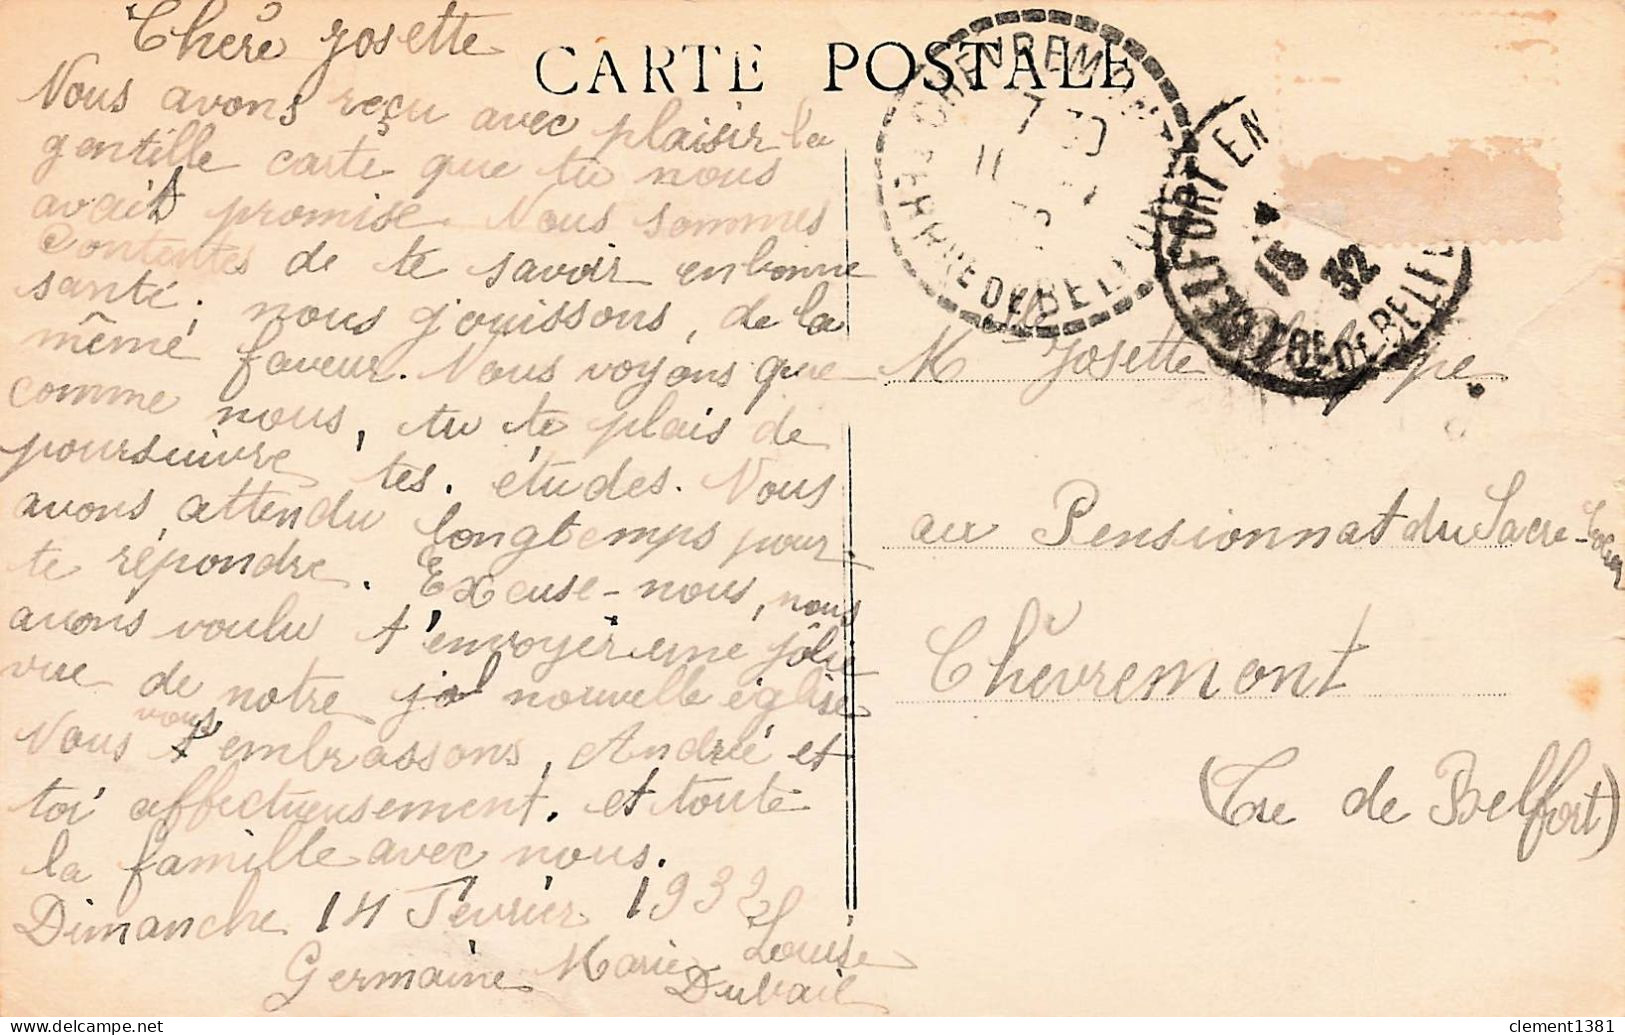 Chère Josette
Nous avons reçu avec plaisir la
gentille carte que tu nous
avait promise. Nous sommes
contentes de te savoir en bonne
santé; nous jouissons, de la
même faveur. Nous voyons que
comme nous, tu te plais de
poursuivre tes. études. Nous
avons attendu longtemps pour
te répondre. Excuse-nous, nous
avons voulu t'envoyer une jolie
vue de notre nouvelle église
Nous vous t'embrassons, Andrée et
toi affectueusement. et toute
la famille avec nous.
Dimanche 14 Février 1932
Germaine Marie Louise
Duvail
CARTE POSTALE
CHEVREMONT
7 30
11
TERRRE DE BELFORT
BELFORT EN
15
32
TRE DE BELF
Mlle Josette
au Pensionnat du Sacré-Coeur
Chèvremont
(Tre de Belfort)
clement1381